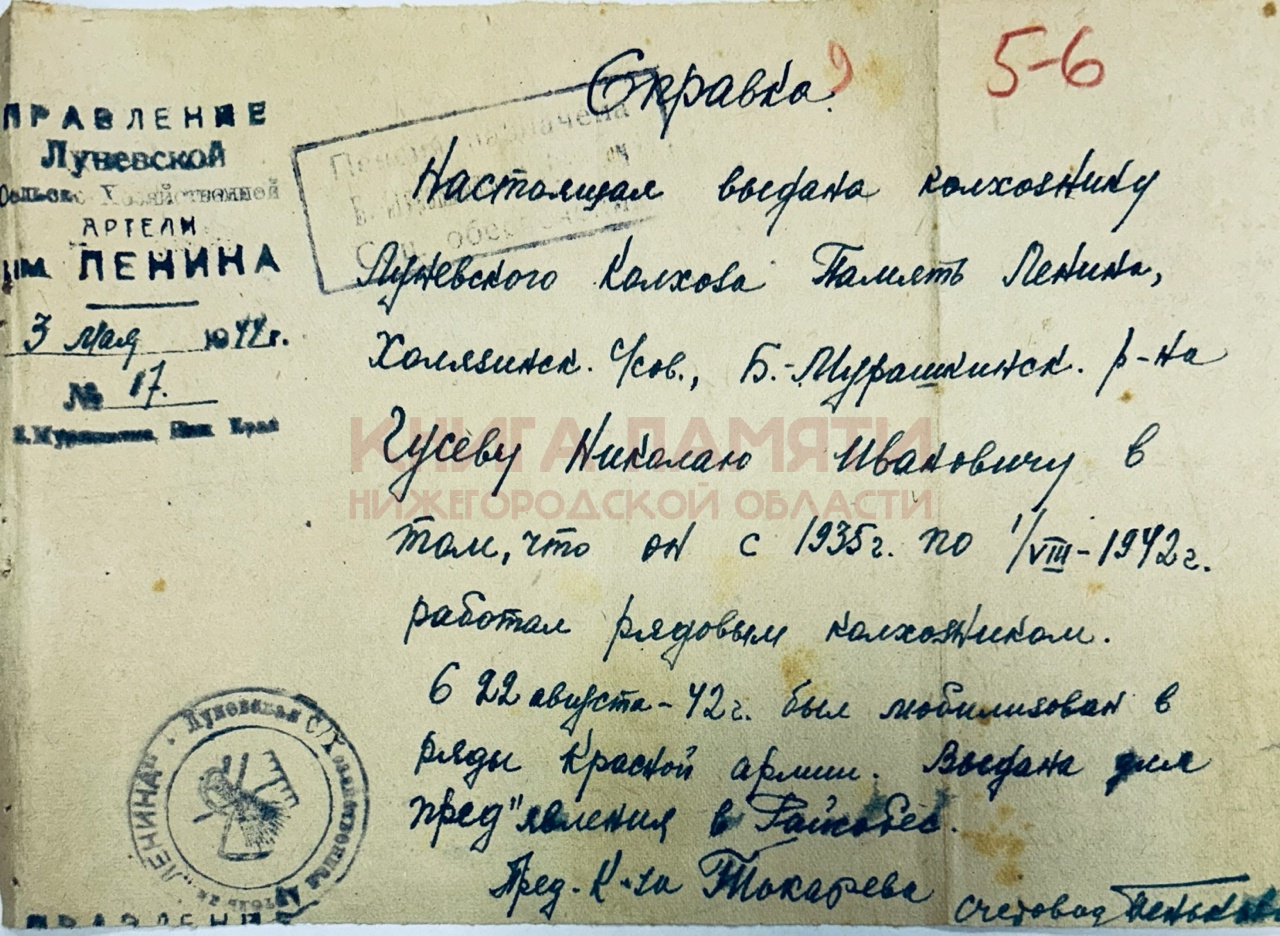 Справка.
9
5-6
ПРАВЛЕНИЕ
Луневской
Сельско Хозяйственной
АРТЕЛИ
им. ЛЕНИНА
3 мая 1944 г.
№ 17.
Б. Мурашкино, Ниж Край
Пенсия назначена
Соц. обес
Настоящая выдана колхознику
Луневского Колхоза Память Ленина,
Холязинск. с/сов., Б.-Мурашкинск. р-на
Гусеву Николаю Ивановичу в
том, что он с 1935г. по 1/VIII-1942г.
работал рядовым колхозником.
С 22 августа-42г. был мобилизован в
ряды Красной армии. Выдана для
пред"явления в Райсобес.
Пред. К-за Токарева
Счетовод
Луневская С/Хозяйственная Артель им. "ЛЕНИНА"
ПРАВЛЕНИЕ
КНИГА ПАМЯТИ
НИЖЕГОРОДСКОЙ ОБЛАСТИ